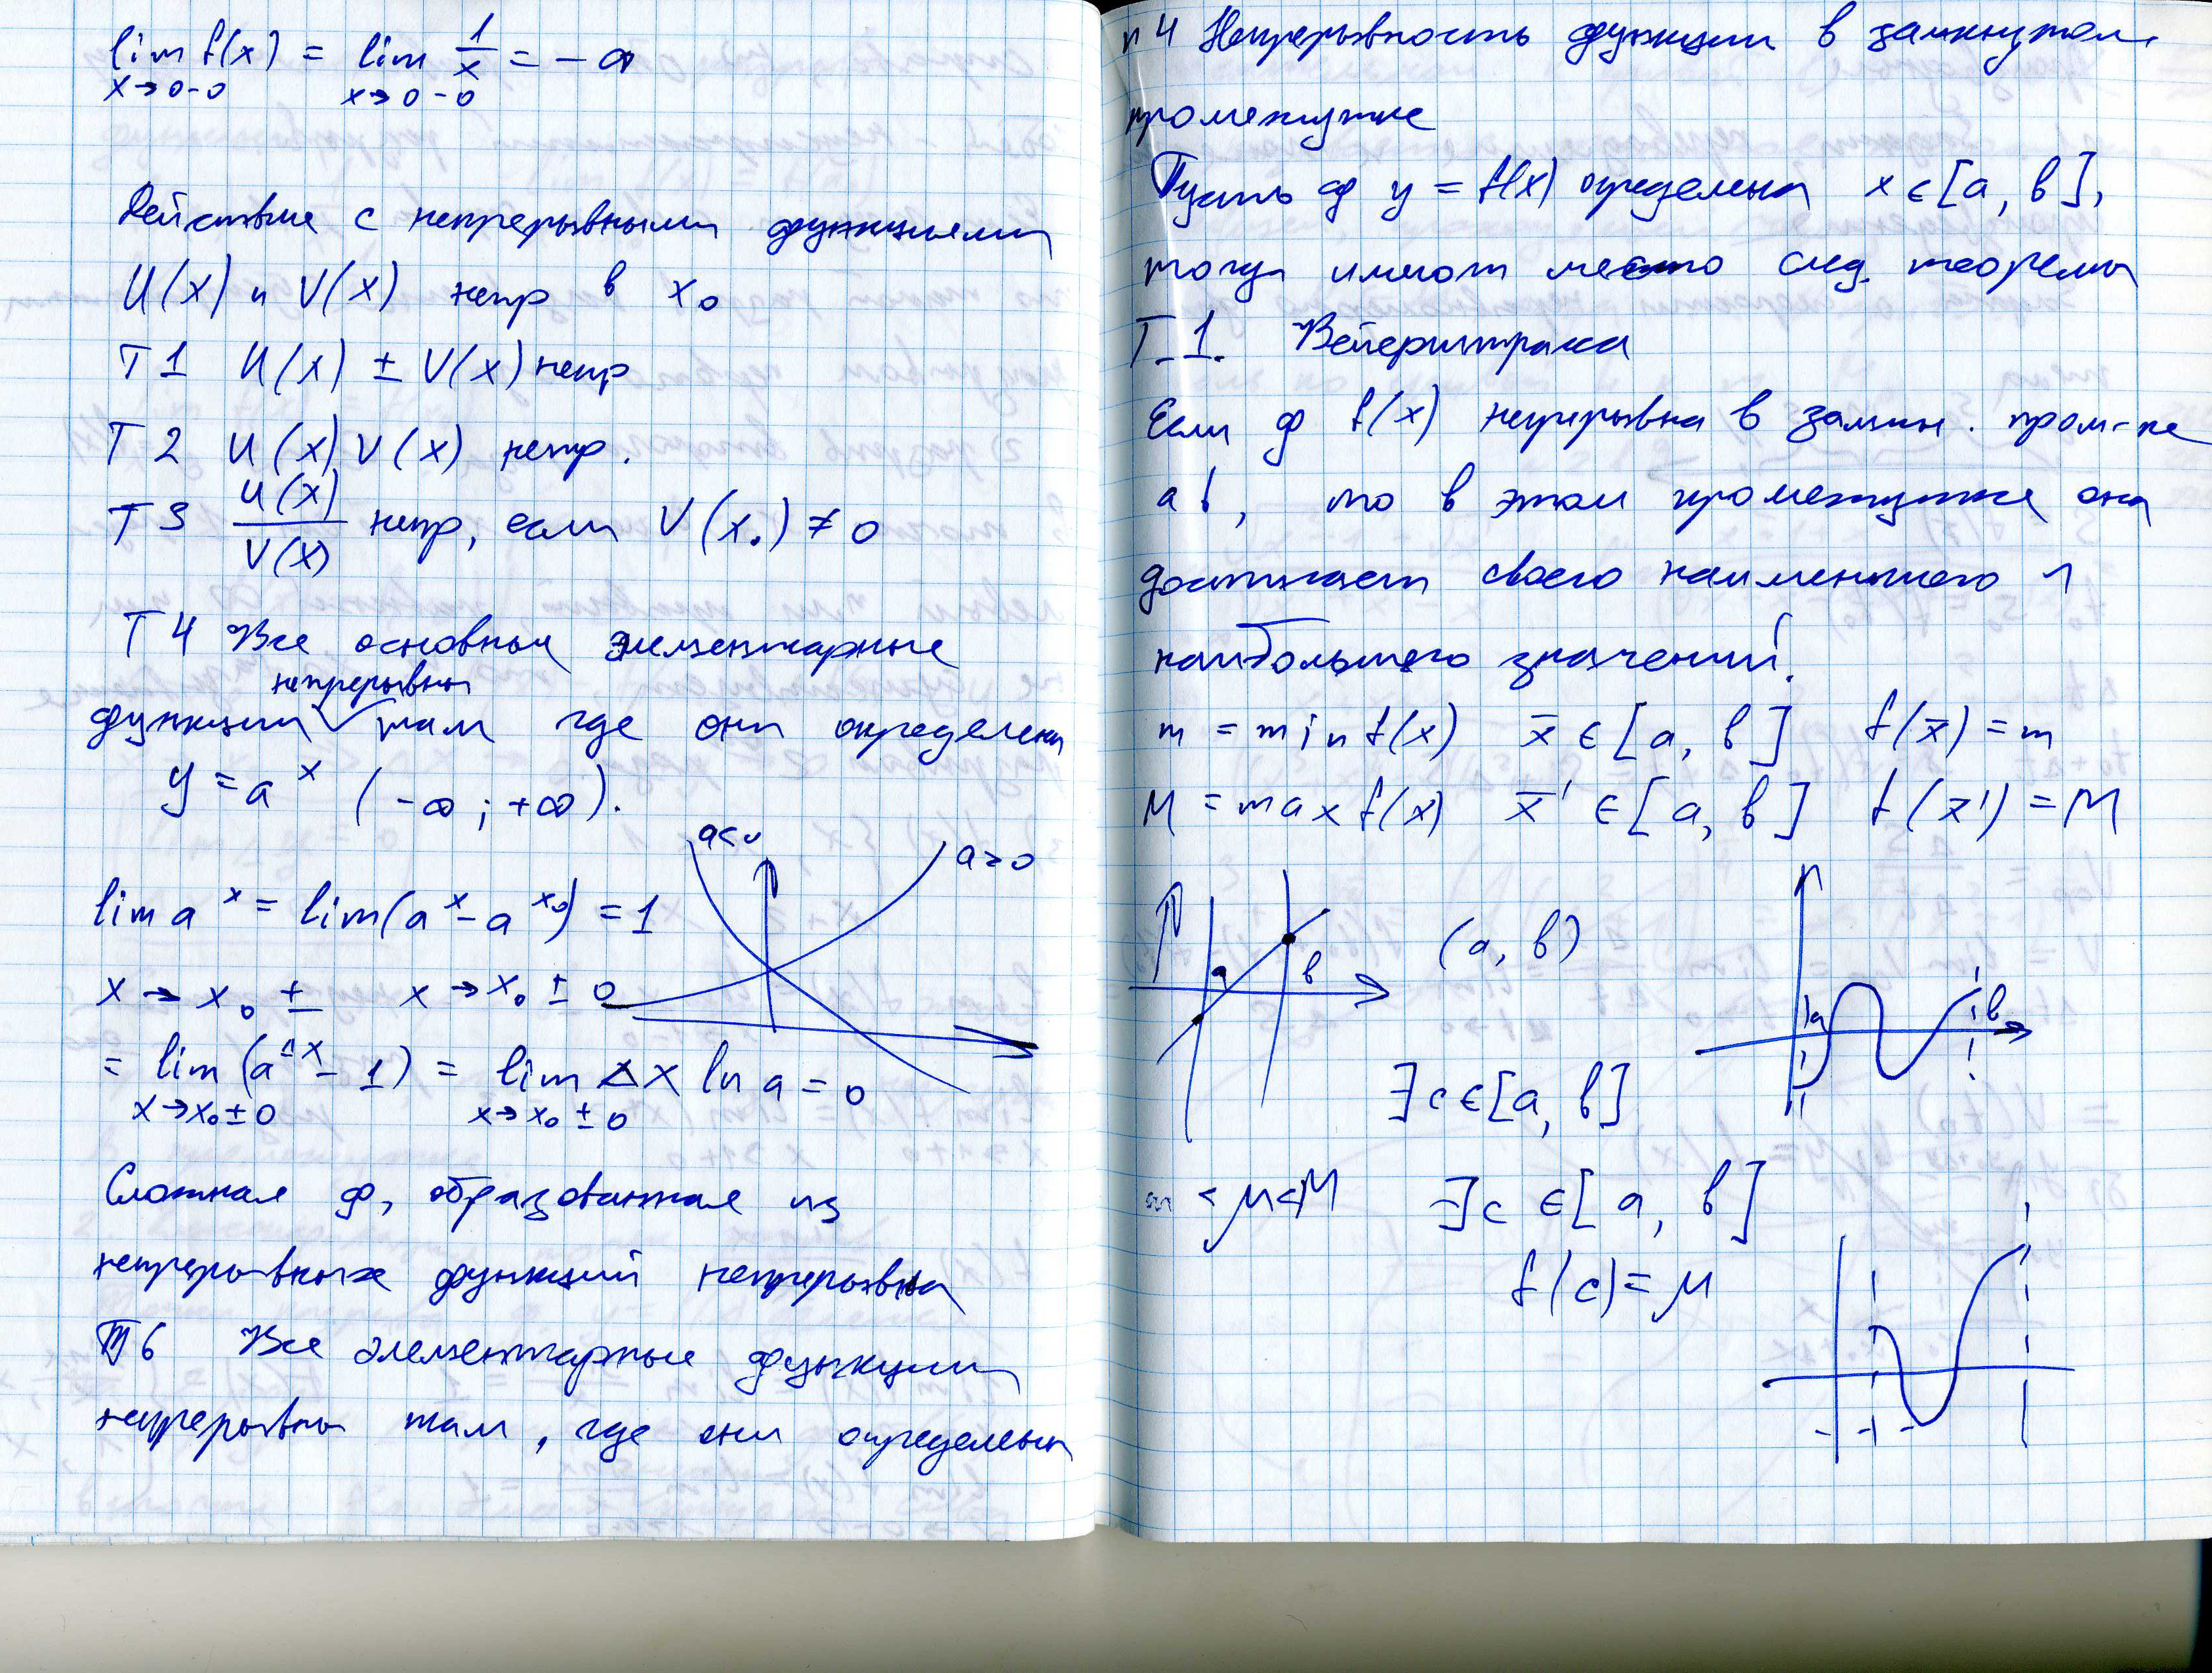 lim f(x) = lim 1/x = -∞
x→0-0 x→0-0
Действие с непрерывными функциями
U(x) и V(x) непр в x₀
T 1 U(x) ± V(x) непр
T 2 U(x) V(x) непр.
T 3 U(x)/V(x) непр, если V(x₀) ≠ 0
T 4 Все основные элементарные
непрерывны
функции там где они определены
y = aˣ (-∞; +∞).
a<0
a>0
lim aˣ = lim(aˣ - aˣ⁰) = 1
x → x₀ ± x → x₀ ± 0
= lim (a^Δx - 1) = lim Δx ln a = 0
x→x₀±0 x→x₀±0
Сложная ф, образованная из
непрерывных функций непрерывна
T 6 Все элементарные функции
непрерывны там, где они определены
п 4 Непрерывность функции в замкнутом
промежутке
Пусть ф y = f(x) определена x ∈ [a, b],
тогда имеют место след. теоремы
T. 1. Вейерштрасса
Если ф f(x) непрерывна в замкн. пром-ке
ab, то в этом промежутке она
достигает своего наименьшего и
наибольшего значений.
m = min f(x) x̄ ∈ [a, b] f(x̄) = m
M = max f(x) x̄' ∈ [a, b] f(x̄') = M
a b
(a, b)
a b
∃ c ∈ [a, b]
m < μ < M ∃ c ∈ [a, b]
f(c) = μ